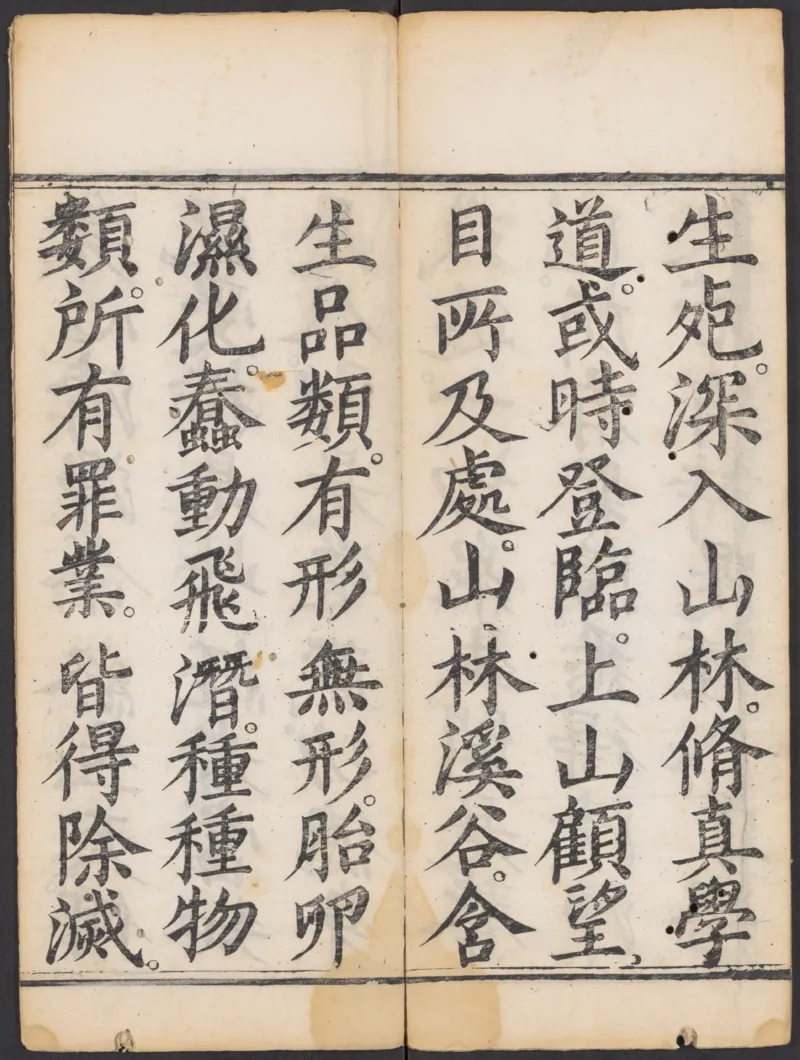 生死。深入山林。脩真學
道。或時登臨。上山顧望。
目所及處。山林溪谷。含
生品類。有形無形。胎卵
濕化。蠢動飛潛。種種物
類。所有罪業。皆得除滅。